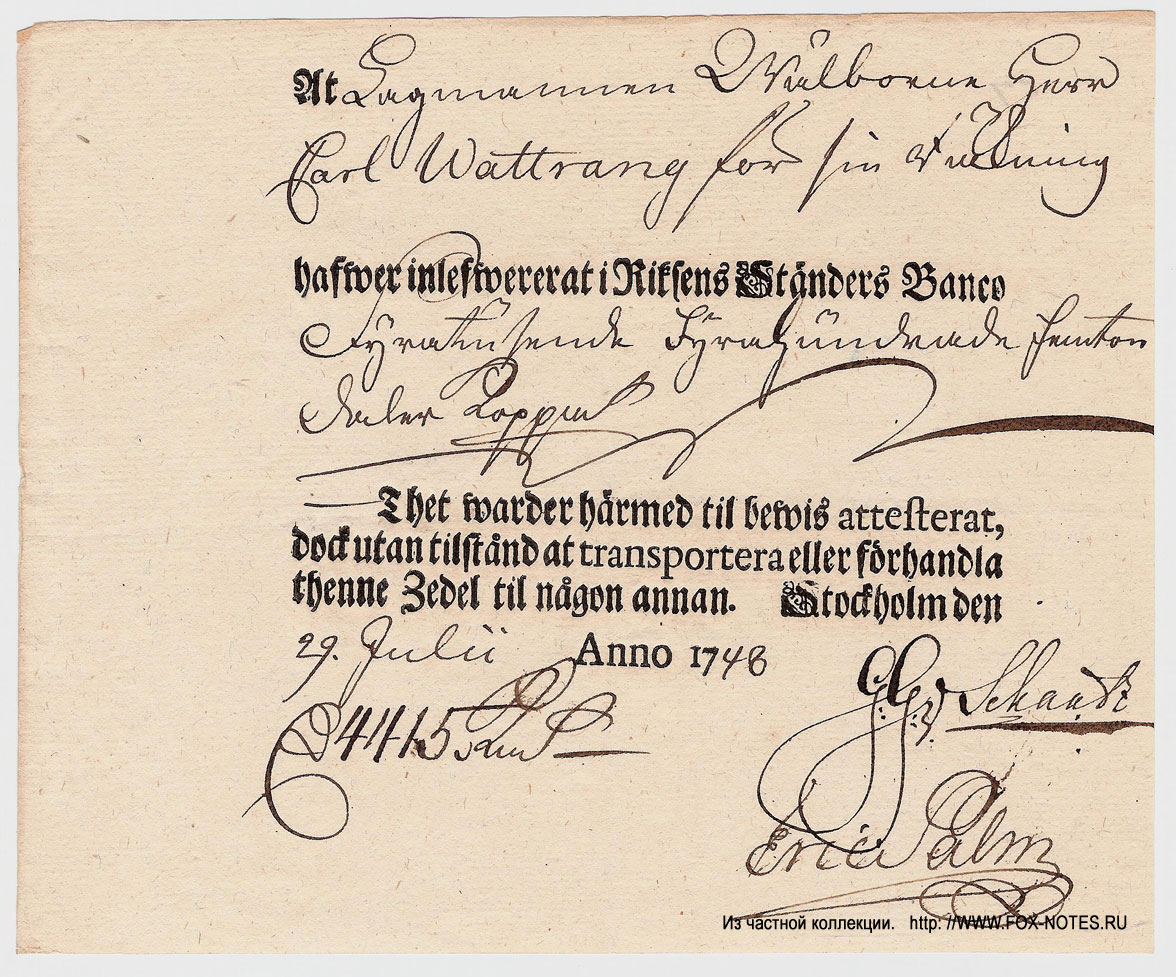 At Lagmannen Wälborne Herr
Carl Wattrang för sin räkning
hafwer inlefwererat i Riksens Ständers Banco
Fyratusende Fyrahundrade femton
daler Kopp mt
Thet warder härmed til bewis attesterat,
dock utan tilstånd at transportera eller förhandla
thenne Zedel til någon annan. Stockholm den
29. Julii Anno 1748
D 4415 Kmt
Eric Palm
Из частной коллекции. http: //WWW.FOX-NOTES.RU